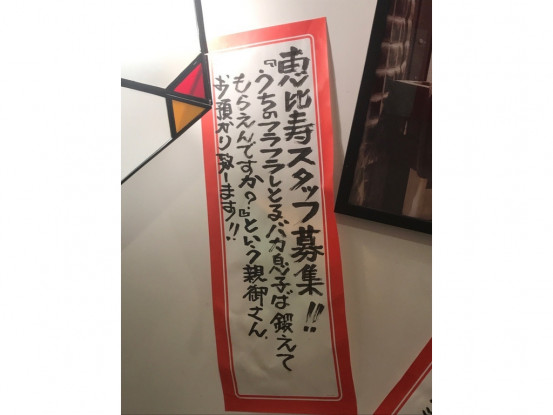 恵比寿スタッフ募集!!
『うちのフラフラしとるバカ息子ば鍛えて
もらえんですか?』という親御さん、
お預かり致します!!